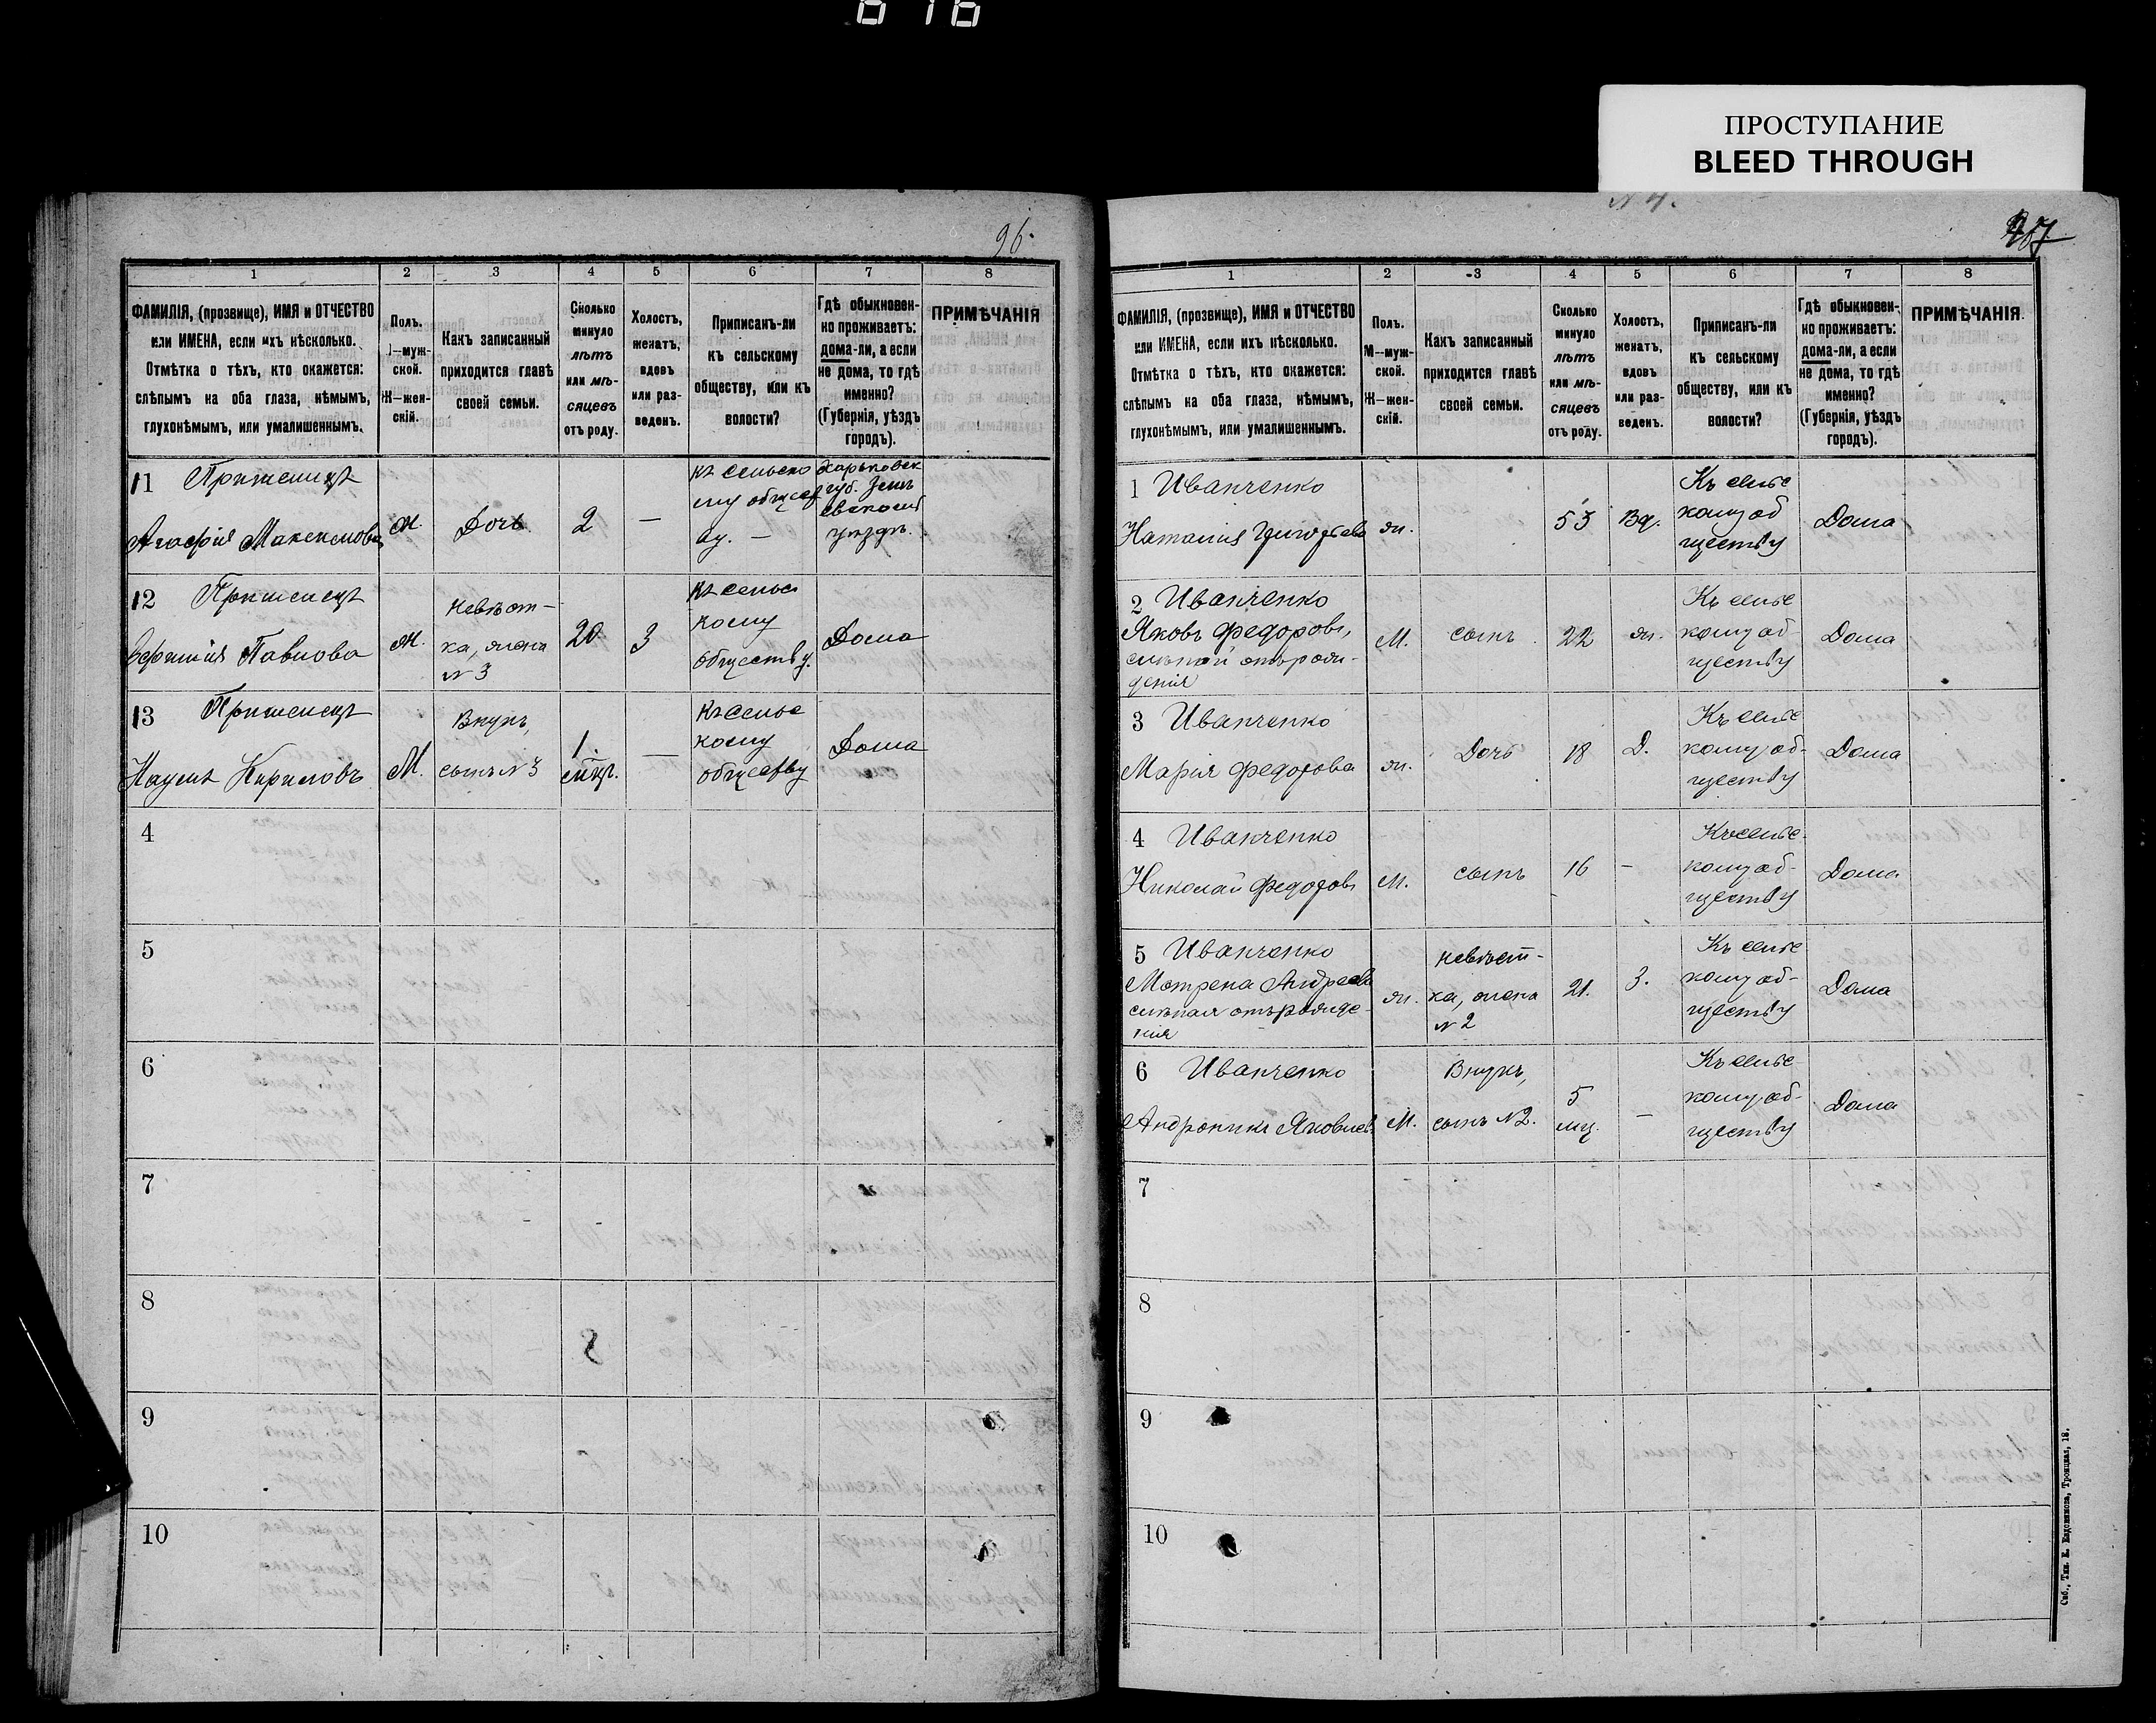 616
ПРОСТУПАНИЕ
BLEED THROUGH
96.
1 2 3 4 5 6 7 8
ФАМИЛІЯ, (прозвище), ИМЯ и ОТЧЕСТВО
или ИМЕНА, если ихъ нѣсколько.
Отмѣтка о тѣхъ, кто окажется:
слѣпымъ на оба глаза, нѣмымъ,
глухонѣмымъ, или умалишеннымъ.
Полъ.
М—муж-
ской.
Ж—жен-
скій.
Какъ записанный
приходится главѣ
своей семьи.
Сколько
минуло
лѣтъ
или мѣ-
сяцевъ
отъ роду.
Холостъ,
женатъ,
вдовъ
или раз-
веденъ.
Приписанъ-ли
къ сельскому
обществу, или къ
волости?
Гдѣ обыкновен-
но проживаетъ:
дома-ли, а если
не дома, то гдѣ
именно?
(Губернія, уѣздъ
городъ).
ПРИМѢЧАНІЯ
11
Агафія Максимова
ж.
Дочь
2
—
къ сельско
му общест
ву. —
Харьковск
губ. Зміі
евскомъ
уѣздѣ.
12
Павлова
ж.
невѣст-
ка, жена
№ 3
20
З
къ сельс
кому
обществу.
Дома
13
Наумъ Кириловъ
М.
Внукъ,
сынъ № 3
1.
мѣс.
—
къ сельс
кому
обществу
Дома
4
5
6
7
8
9
10
N 4.
1 2 3 4 5 6 7 8
ФАМИЛІЯ, (прозвище), ИМЯ и ОТЧЕСТВО
или ИМЕНА, если ихъ нѣсколько.
Отмѣтка о тѣхъ, кто окажется:
слѣпымъ на оба глаза, нѣмымъ,
глухонѣмымъ, или умалишеннымъ.
Полъ.
М—муж-
ской.
Ж—жен-
скій.
Какъ записанный
приходится главѣ
своей семьи.
Сколько
минуло
лѣтъ
или мѣ-
сяцевъ
отъ роду.
Холостъ,
женатъ,
вдовъ
или раз-
веденъ.
Приписанъ-ли
къ сельскому
обществу, или къ
волости?
Гдѣ обыкновен-
но проживаетъ:
дома-ли, а если
не дома, то гдѣ
именно?
(Губернія, уѣздъ
городъ).
ПРИМѢЧАНІЯ.
1 Иванченко
Наталія Григорьева
ж.
53
Вд.
Къ сельс
кому об
ществу
Дома
2 Иванченко
Яковъ Федоровъ,
слѣпой отъ рож-
денія
М.
сынъ
22
ж.
Къ сельс
кому об-
ществу
Дома
3 Иванченко
Марія Федорова
ж.
Дочь
18
Д.
Къ сельс
кому об-
ществу
Дома
4 Иванченко
Николай Федоровъ
М.
сынъ
16
—
Къ сельс
кому об-
ществу
Дома
5 Иванченко
Мотрена Андреева
слѣпая отъ рожде-
нія
ж.
невѣст-
ка, жена
№ 2
21.
З.
Къ сельс
кому об-
ществу
Дома
6 Иванченко
Андроникъ Яковлев.
М.
Внукъ,
сынъ № 2.
5
мц.
—
Къ сельс
кому об-
ществу
Дома
7
8
9
10
Спб., Тип. Е. Евдокимова, Троицкая, 18.